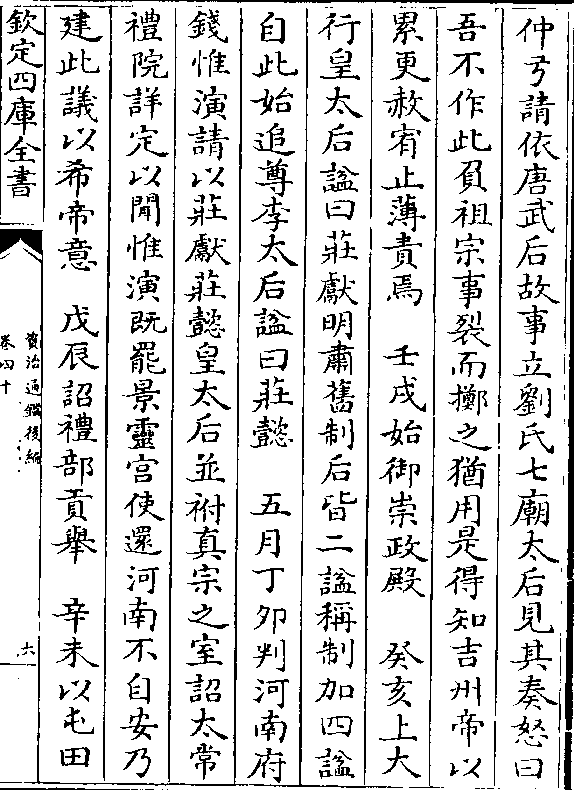 仲弓請依唐武后故事立劉氏七廟太后見其奏怒曰
吾不作此負祖宗事裂而擲之猶用是得知吉州帝以
累更赦宥止薄責焉　壬戌始御崇政殿　癸亥上大
行皇太后諡曰莊獻明肅舊制后皆二諡稱制加四諡
自此始追尊李太后諡曰莊懿　五月丁卯判河南府
錢惟演請以莊獻莊懿皇太后並祔真宗之室詔太常
禮院詳定以聞惟演既罷景靈宮使還河南不自安乃
建此議以希帝意　戊辰詔禮部貢舉　辛未以屯田
欽定四庫全書
資治通鑑後編
卷四十
六